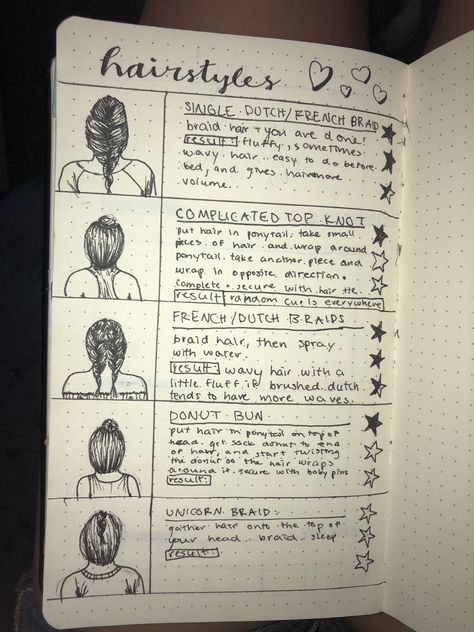 hairstyles
SINGLE DUTCH/FRENCH BRAID
braid hair + you are done!
result: fluffy, sometimes
wavy hair.. easy to do before
bed, and gives hair more
volume.
COMPLICATED TOP KNOT
put hair in ponytail. take small
pieces of hair and wrap around
ponytail. take another piece and
wrap in opposite direction.
complete + secure with hair tie.
result random curls everywhere
FRENCH/DUTCH BRAIDS
braid hair, then spray
with water.
result: wavy hair with a
little fluff if brushed. dutch
tends to have more waves.
DONUT BUN
put hair in ponytail on top of
head. get sock donut to end
of hair, and start twisting
the donut so the hair wraps
around it. secure with boby pins
result:
UNICORN BRAID:
gather hair onto the top of
your head.. braid.. sleep
result: